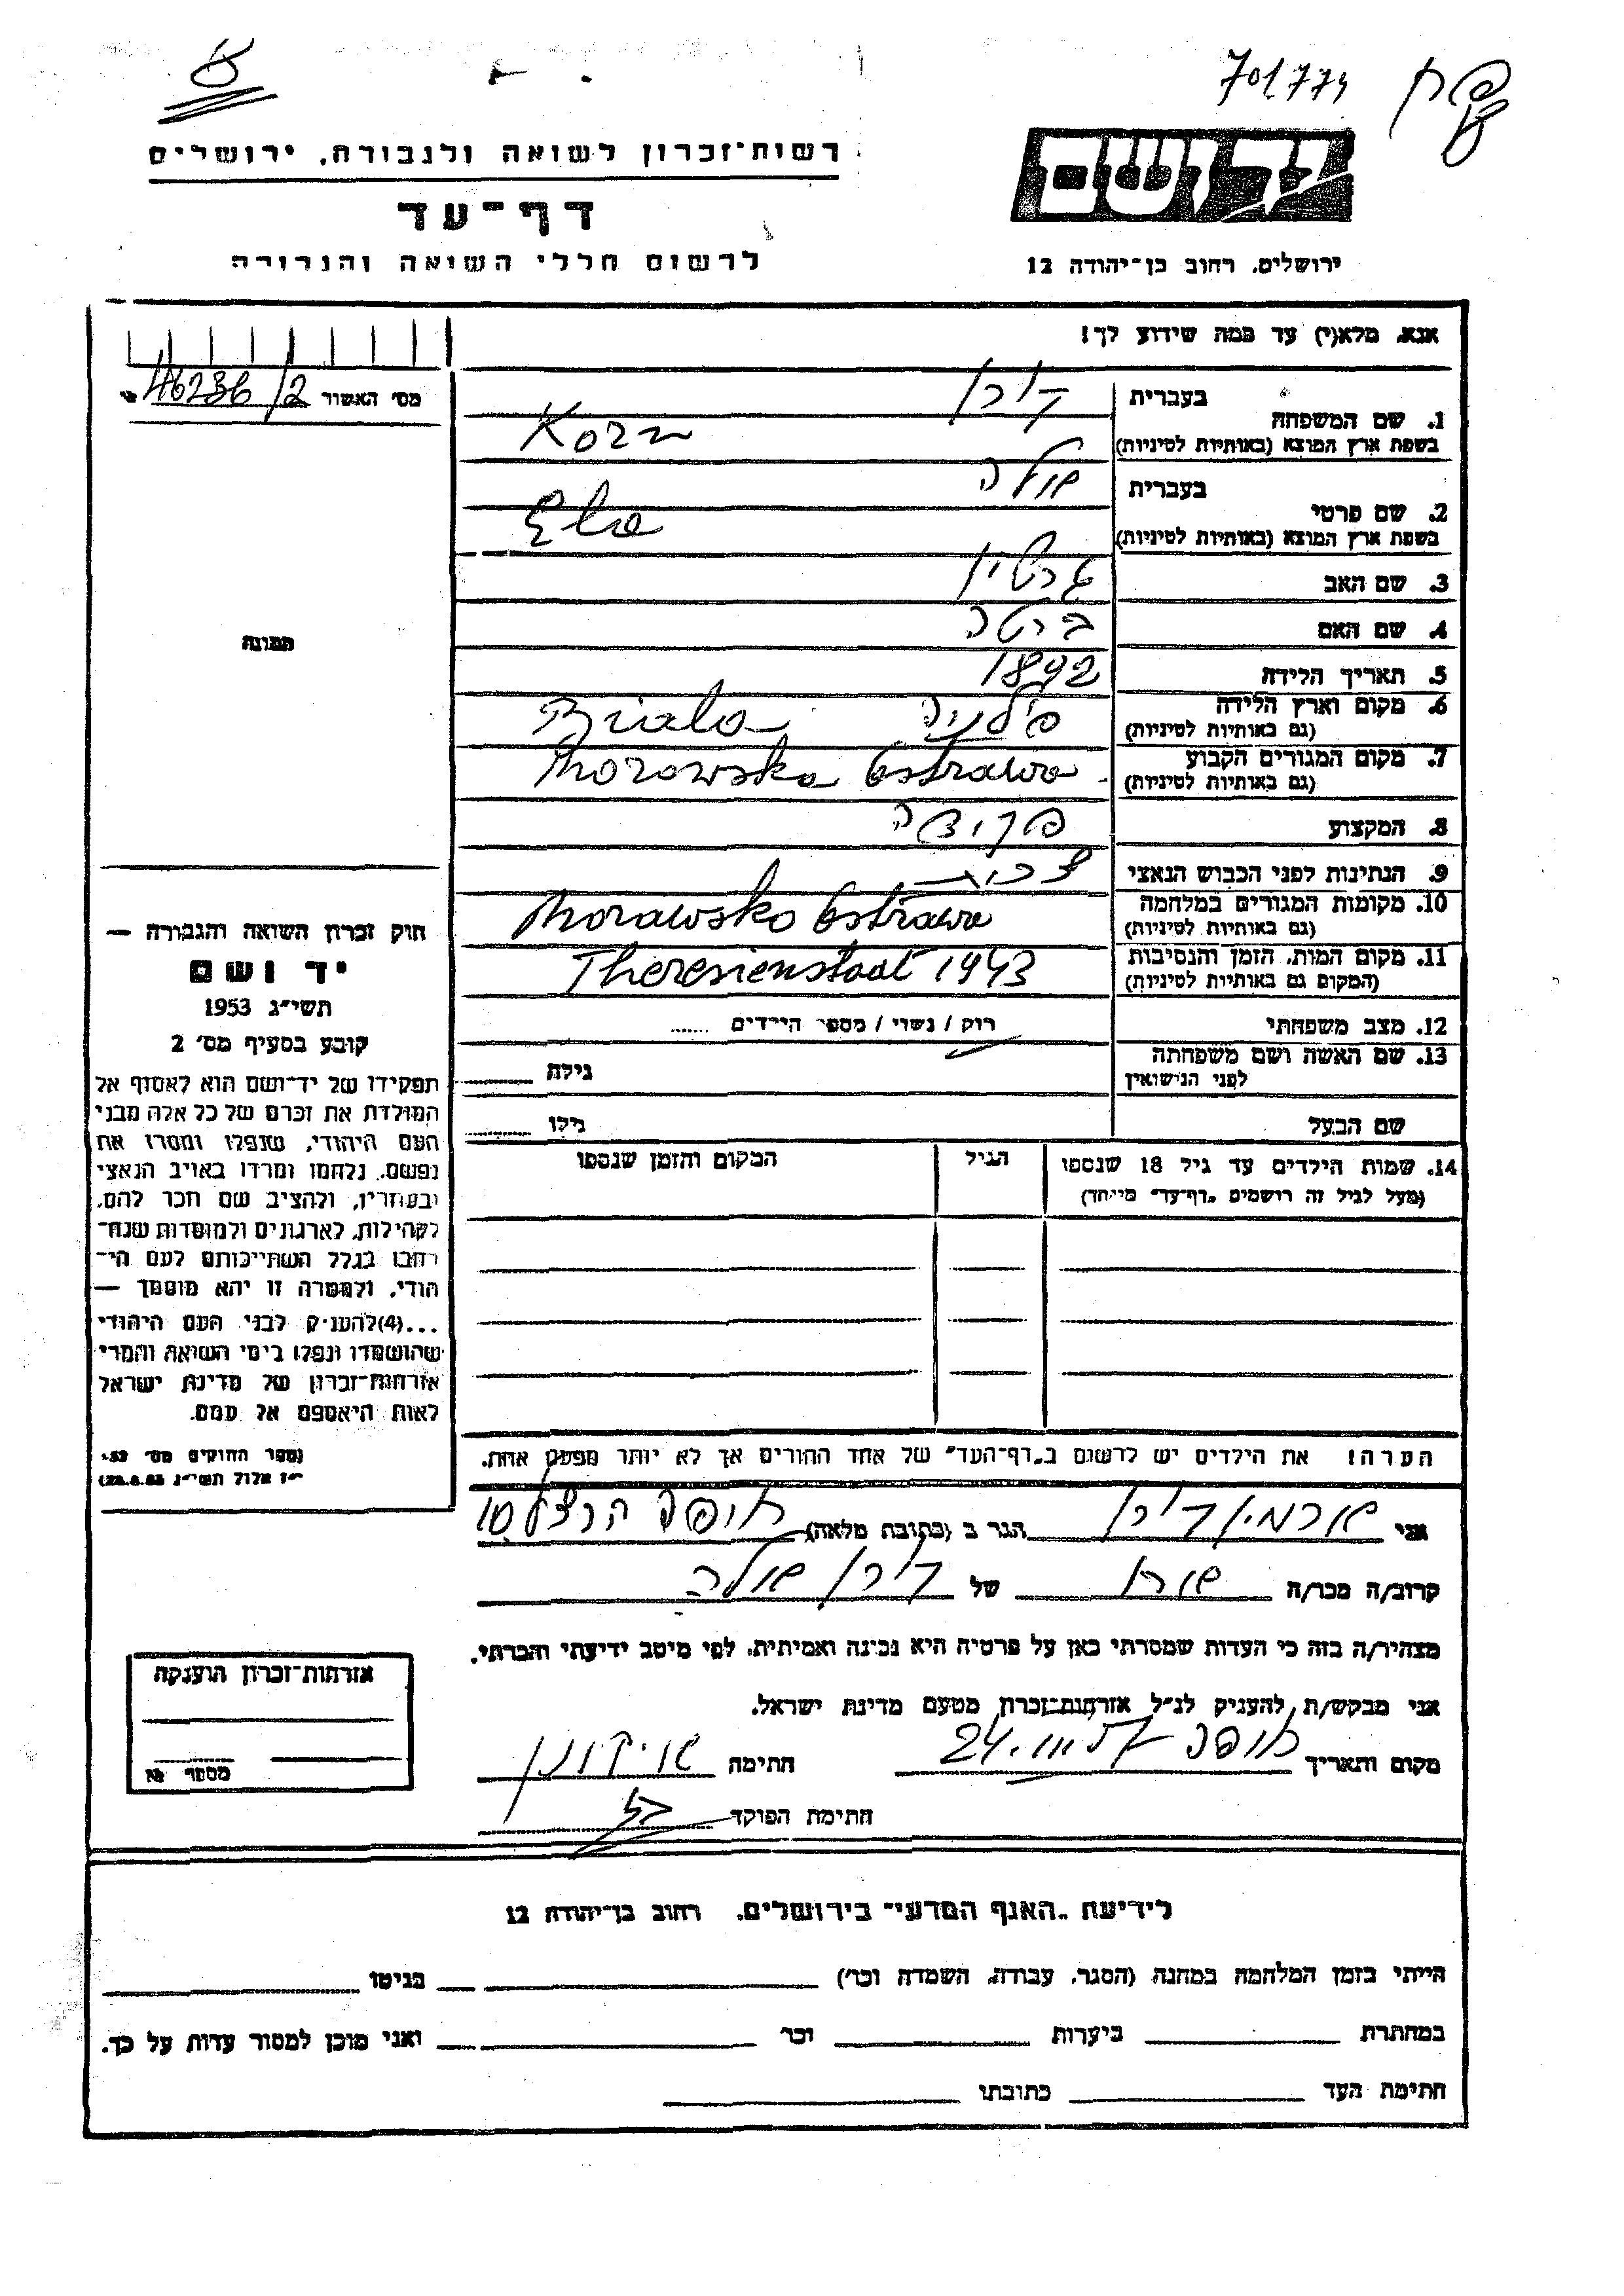 701774
רשות־זכרון לשואה ולגבורה, ירושלים
יד ושם
דף־עד
לרשום חללי השואה והגבורה
ירושלים, רחוב בן־יהודה 12
אנא, מלא(י) עד כמה שידוע לך!
מס׳ האשור 46236/2
1. שם המשפחה בעברית קורן
בשפת ארץ המוצא (באותיות לטיניות) Korn
2. שם פרטי בעברית אולה
בשפת ארץ המוצא (באותיות לטיניות) Ela
3. שם האב
4. שם האם ברטה
5. תאריך הלידה 1892
6. מקום וארץ הלידה פולניה Biala
(גם באותיות לטיניות)
7. מקום המגורים הקבוע Morowska Ostrawa
(גם באותיות לטיניות)
8. המקצוע פקידה
9. הנתינות לפני הכבוש הנאצי
10. מקומות המגורים במלחמה Morawska Ostrawa
(גם באותיות לטיניות)
11. מקום המות, הזמן והנסיבות Theresienstaat 1943
(המקום גם באותיות לטיניות)
12. מצב משפחתי רוק / נשוי / מספר הילדים
13. שם האשה ושם משפחתה
לפני הנישואין
גילה
שם הבעל גילו
14. שמות הילדים עד גיל 18 שנספו הגיל המקום והזמן שנספו
(מעל לגיל זה רושמים „דף־עד״ מייחד)
הערה! את הילדים יש לרשום ב„דף־העד״ של אחד ההורים אך לא יותר מפעם אחת.
תמונה
חוק זכרון השואה והגבורה —
יד ושם
תשי״ג 1953
קובע בסעיף מס׳ 2
תפקידו של יד־ושם הוא לאסוף אל
המולדת את זכרם של כל אלה מבני
העם היהודי, שנפלו ומסרו את
נפשם, נלחמו ומרדו באויב הנאצי
ובעוזריו, ולהציב שם וזכר להם,
לקהילות, לארגונים ולמוסדות שנח־
רבו בגלל השתייכותם לעם הי־
הודי, ולמטרה זו יהא מוסמך —
...(4)להעניק לבני העם היהודי
שהושמדו ונפלו בימי השואה והמרי
אזרחות־זכרון של מדינת ישראל
לאות היאספם אל עמם.
(ספר החוקים מס׳ 132,
י״ז אלול תשי״ג 28.8.53)
אני קורן הגר ב (כתובת מלאה) חיפה הרצל 10
קרוב/ה מכר/ה של קורן אולה
מצהיר/ה בזה כי העדות שמסרתי כאן על פרטיה היא נכונה ואמיתית, לפי מיטב ידיעתי והכרתי.
אני מבקש/ת להעניק לנ״ל אזרחות־זכרון מטעם מדינת ישראל.
מקום ותאריך חיפה חתימה
חתימת הפוקד
אזרחות־זכרון הוענקה
מספר
לידיעת „האגף המדעי״ בירושלים, רחוב בן־יהודה 12
הייתי בזמן המלחמה במחנה (הסגר, עבודה, השמדה וכו׳) בגיטו
במחתרת ביערות וכו׳ ואני מוכן למסור עדות על כך.
חתימת העד כתובתו